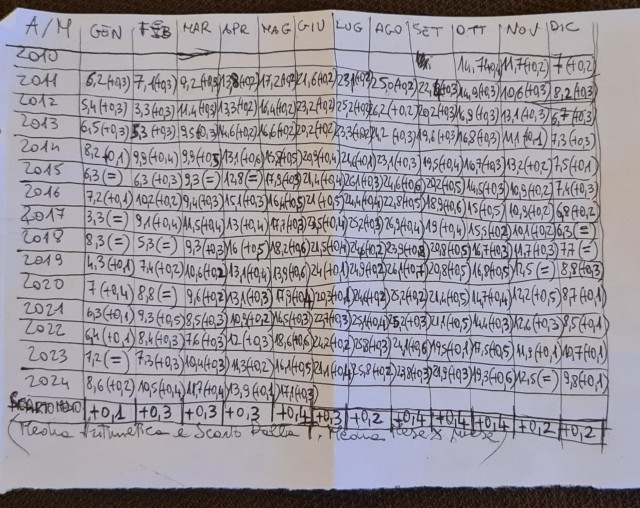 A/M GEN FEB MAR APR MAG GIU LUG AGO SET OTT NOV DIC
2010 14,7(+0,4) 11,7(+0,2) 7(+0,2)
2011 6,2(+0,3) 7,1(+0,3) 9,2(+0,3) 17,2(+0,2) 21,6(+0,2) 25,0(+0,2) 10,6(+0,3) 8,2(+0,3)
2012 5,4(+0,3) 3,3(+0,3) 11,4(+0,3) 13,3(+0,2) 16,4(+0,2) 23,2(+0,2) 25,2(+0,2) 26,2(+0,2) 20,2(+0,3) 13,1(+0,3) 6,7(+0,3)
2013 6,5(+0,3) 5,3(+0,3) 9,5(+0,3) 14,6(+0,2) 16,6(+0,2) 20,2(+0,2) 19,6(+0,3) 16,8(+0,3) 11,1(+0,1) 7,3(+0,3)
2014 8,2(+0,1) 9,9(+0,4) 9,9(+0,5) 13,1(+0,6) 15,8(+0,5) 20,9(+0,4) 23,1(+0,3) 19,5(+0,4) 13,2(+0,2) 7,5(+0,1)
2015 6,3(=) 6,3(+0,3) 9,3(=) 12,8(=) 17,9(+0,3) 21,4(+0,4) 26,1(+0,3) 24,6(+0,6) 20,2(+0,5) 14,5(+0,3) 10,9(+0,2) 7,4(+0,3)
2016 7,2(+0,1) 10,2(+0,2) 9,4(+0,3) 15,1(+0,3) 16,4(+0,5) 21(+0,5) 24,4(+0,4) 22,8(+0,5) 18,9(+0,6) 15(+0,5) 10,9(+0,2) 6,8(+0,2)
2017 3,3(=) 9,1(+0,4) 11,5(+0,4) 13(+0,4) 23,5(+0,4) 25,2(+0,3) 26,9(+0,4) 19(+0,4) 15,5(+0,2) 10,1(+0,2) 6,3(=)
2018 8,3(=) 5,3(=) 9,3(+0,3) 16(+0,5) 18,2(+0,6) 21,5(+0,4) 20,8(+0,5) 16,7(+0,3) 11,7(+0,3) 7,7(=)
2019 4,3(+0,1) 7,4(+0,2) 10,6(+0,2) 13,1(+0,4) 13,9(+0,6) 24(+0,1) 24,9(+0,2) 20,8(+0,5) 16,8(+0,5) 12,5(=) 8,8(+0,3)
2020 7(+0,4) 8,8(=) 9,6(+0,2) 13,1(+0,3) 17,9(+0,4) 20,3(+0,1) 25,2(+0,2) 21,4(+0,5) 14,7(+0,4) 12,2(+0,5) 8,7(+0,1)
2021 6,3(+0,1) 9,3(+0,5) 8,5(+0,3) 10,9(+0,2) 16,5(+0,3) 25,1(+0,4) 25,2(+0,3) 21,1(+0,5) 14,4(+0,3) 12,6(+0,3) 8,5(+0,1)
2022 6,4(+0,1) 8,4(+0,3) 7,6(+0,3) 12(+0,3) 18,6(+0,6) 24,2(+0,2) 19,5(+0,1) 17,5(+0,5) 11,9(+0,1) 10,7(+0,1)
2023 7,2(=) 7,3(+0,3) 10,4(+0,3) 11,3(+0,2) 16,1(+0,5) 21,1(+0,4) 25,8(+0,2) 23,8(+0,3) 21,9(+0,3) 19,3(+0,6) 12,5(=) 9,8(+0,1)
2024 8,6(+0,2) 10,5(+0,4) 11,7(+0,4) 13,9(+0,1) 17,1(+0,3)
SCARTO MEDIO +0,1 +0,3 +0,3 +0,3 +0,4 +0,3 +0,2 +0,4 +0,4 +0,4 +0,2 +0,2
(Media Aritmetica e Scarto Dalla Media Mese X Mese)